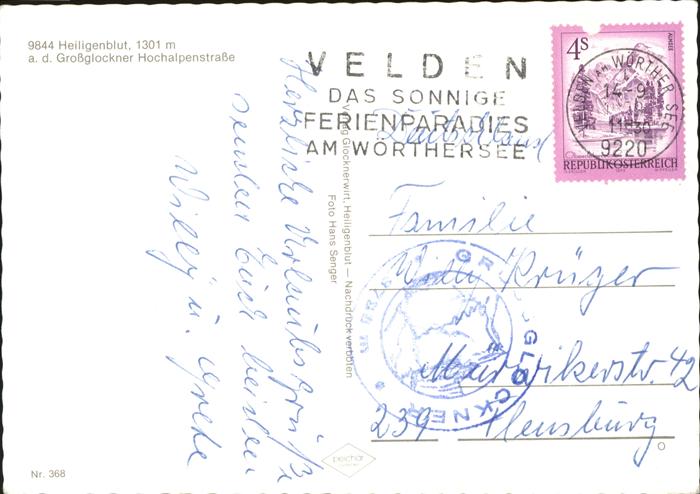 9844 Heiligenblut, 1301 m
a. d. Großglockner Hochalpenstraße
VELDEN
DAS SONNIGE
FERIENPARADIES
AM WÖRTHERSEE
4S
VELDEN AM WÖRTHER SEE
14.-9.
11-30
9220
REPUBLIK ÖSTERREICH
Deutschland
Herzliche Urlaubsgrüße
senden Euch beiden
Willy u. Grete
Verlag Glocknerwirt, Heiligenblut — Nachdruck verboten
Foto Hans Senger
Familie
Willy Krüger
Mürwikerstr. 42
239 Flensburg
GROSSGLOCKNER
Nr. 368